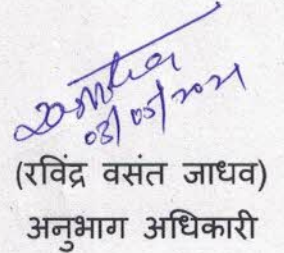 03/05/2021
(रविंद्र वसंत जाधव)
अनुभाग अधिकारी